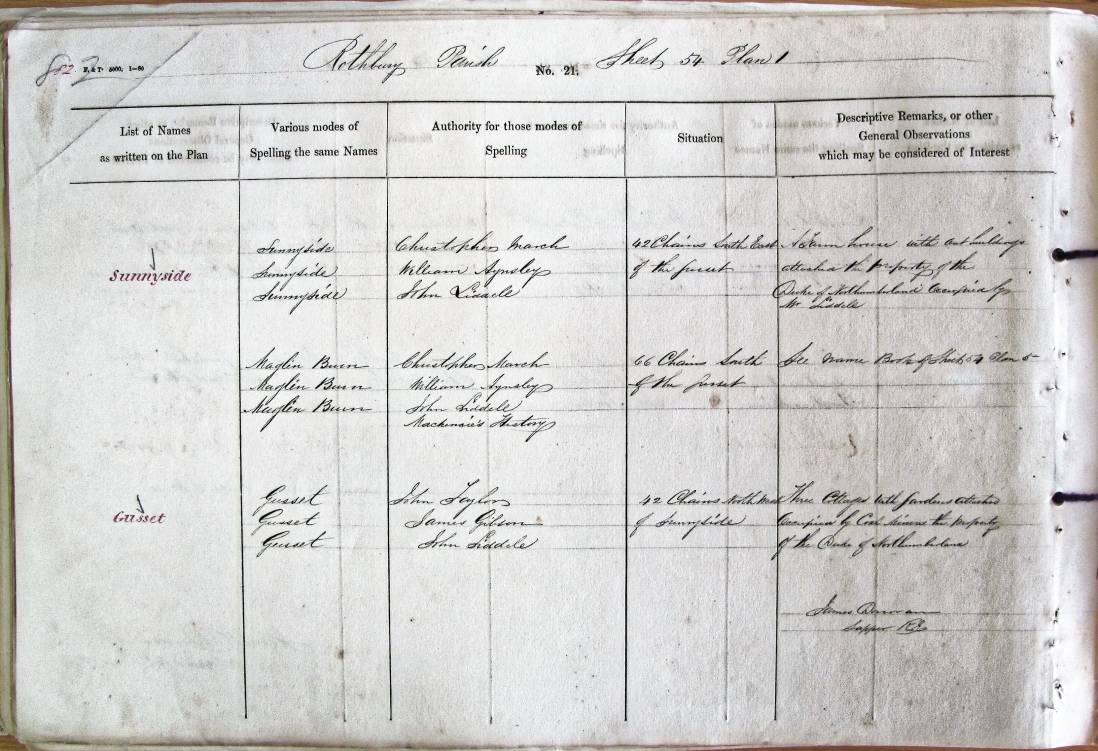 82
F. & T. 5000; 1—60
Rothbury Parish No. 21. Sheet 54 Plan 1
List of Names
as written on the Plan
Various modes of
Spelling the same Names
Authority for those modes of
Spelling
Situation
Descriptive Remarks, or other
General Observations
which may be considered of Interest
Sunnyside
Sunnyside
Sunnyside
Sunnyside
Christopher March
William Aynsley
John Liddell
42 Chains South East
of the Gusset
A Farm house with out buildings
attached the Property of the
Duke of Northumberland Occupied by
Mr Liddell
Maglin Burn
Maglin Burn
Maglin Burn
Christopher March
William Aynsley
John Liddell
Mackenzie's History
66 Chains South
of the Gusset
See Name Book of Sheet 54 Plan 5
Gusset
Gusset
Gusset
Gusset
John Taylor
James Gibson
John Liddell
42 Chains North West
of Sunnyside
Three Cottages with Gardens attached
Occupied by Coal miners the Property
of the Duke of Northumberland
James Donovan
Sapper RE